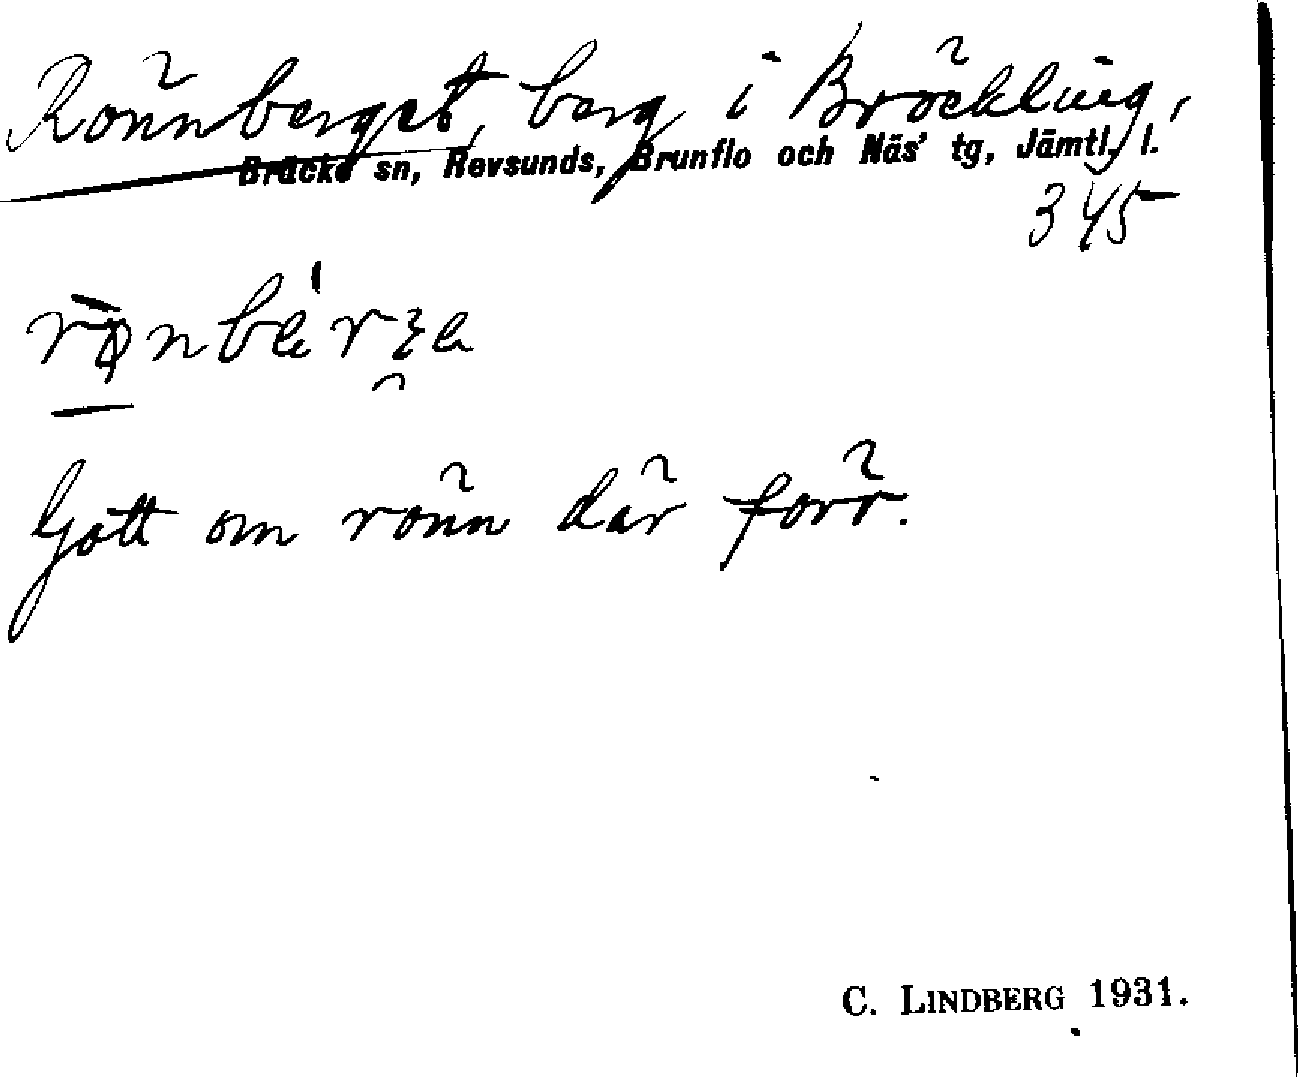 Rönnberget, berg i Bröckling,
Bräcke sn, Revsunds, Brunflo och Näs' tg, Jämtl. l.
345
Gott om rönn där förr.
C. LINDBERG 1931.